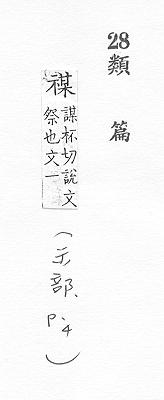 28類 篇
禖 謀杯切說文
祭也文一
(示部、p.4)